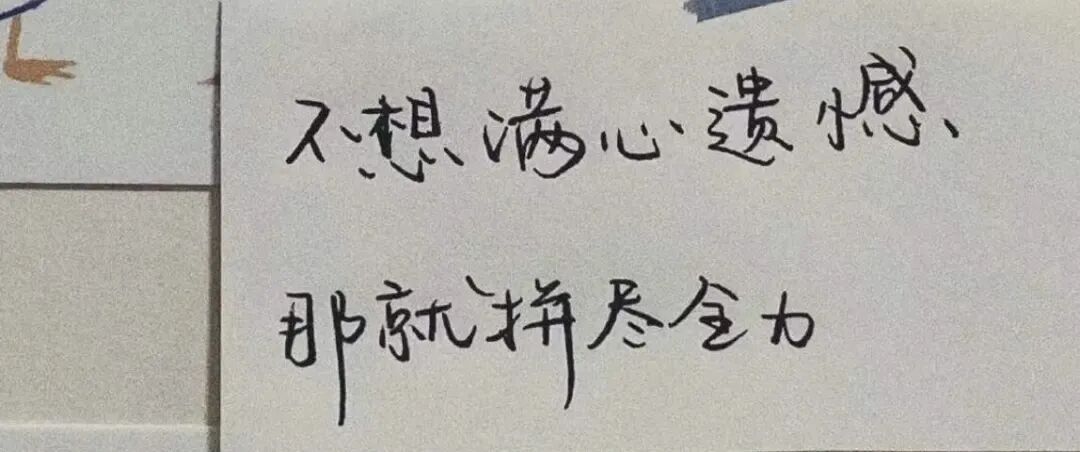 不想满心遗憾、
那就拼尽全力